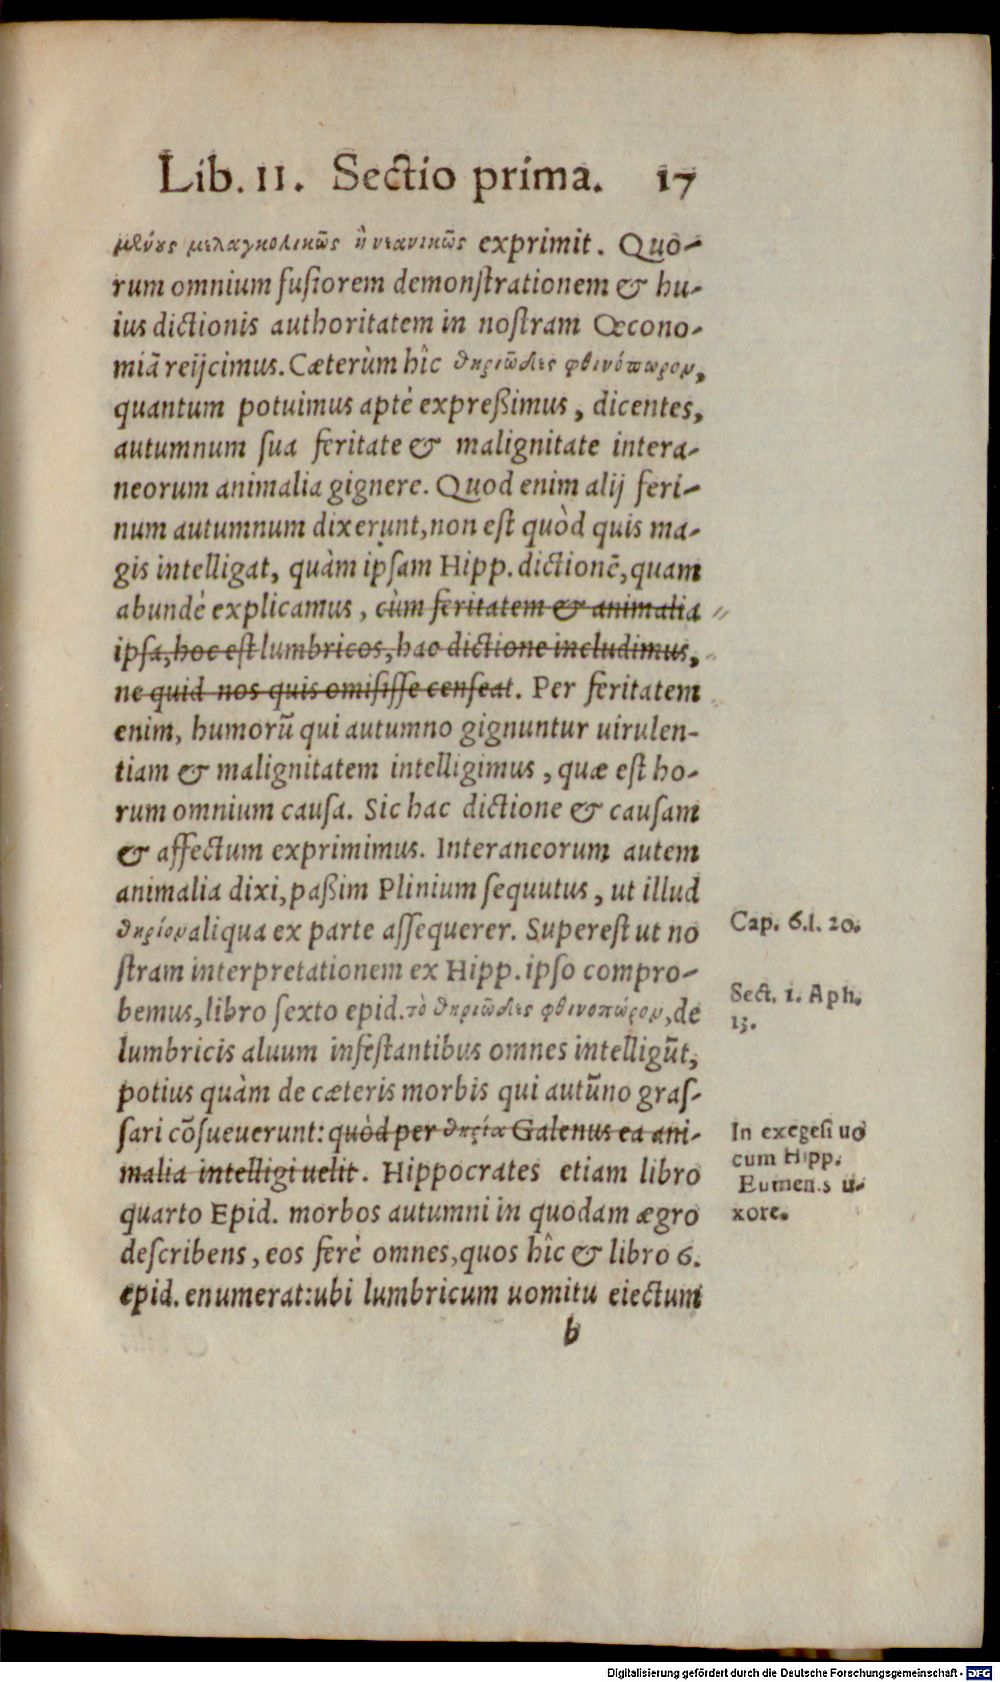 Lib. II. Sectio prima. 17
μελαγχολικῶς ἢ νεανικῶς exprimit. Quo-
rum omnium fusiorem demonstrationem & hu-
ius dictionis authoritatem in nostram Œcono-
miā reijcimus. Cæterùm hîc θηριῶδες φθινόπωρον,
quantum potuimus aptè expreßimus, dicentes,
autumnum sua feritate & malignitate intera-
neorum animalia gignere. Quod enim alij feri-
num autumnum dixerunt, non est quòd quis ma-
gis intelligat, quàm ipsam Hipp. dictionē, quam
abundè explicamus, cùm feritatem & animalia
ipsa, hoc est lumbricos, hac dictione includimus,
ne quid nos quis omisisse censeat. Per feritatem
enim, humorū qui autumno gignuntur uirulen-
tiam & malignitatem intelligimus, quæ est ho-
rum omnium causa. Sic hac dictione & causam
& affectum exprimimus. Interaneorum autem
animalia dixi, paßim Plinium sequutus, ut illud
θηρίον aliqua ex parte assequerer. Superest ut no
stram interpretationem ex Hipp. ipso compro-
bemus, libro sexto epid. τὸ θηριῶδες φθινοπώρον, de
lumbricis aluum infestantibus omnes intelligūt,
potius quàm de cæteris morbis qui autūno gras-
sari cōsueuerunt: quòd per θηρία Galenus ea ani-
malia intelligi uelit. Hippocrates etiam libro
quarto Epid. morbos autumni in quodam ægro
describens, eos ferè omnes, quos hîc & libro 6.
epid. enumerat: ubi lumbricum uomitu eiectum
b
Cap. 6. l. 20.
Sect. 1. Aph.
13.
In exegesi uo
cum Hipp.
Eumenis u-
xore.
Digitalisierung gefördert durch die Deutsche Forschungsgemeinschaft - DFG